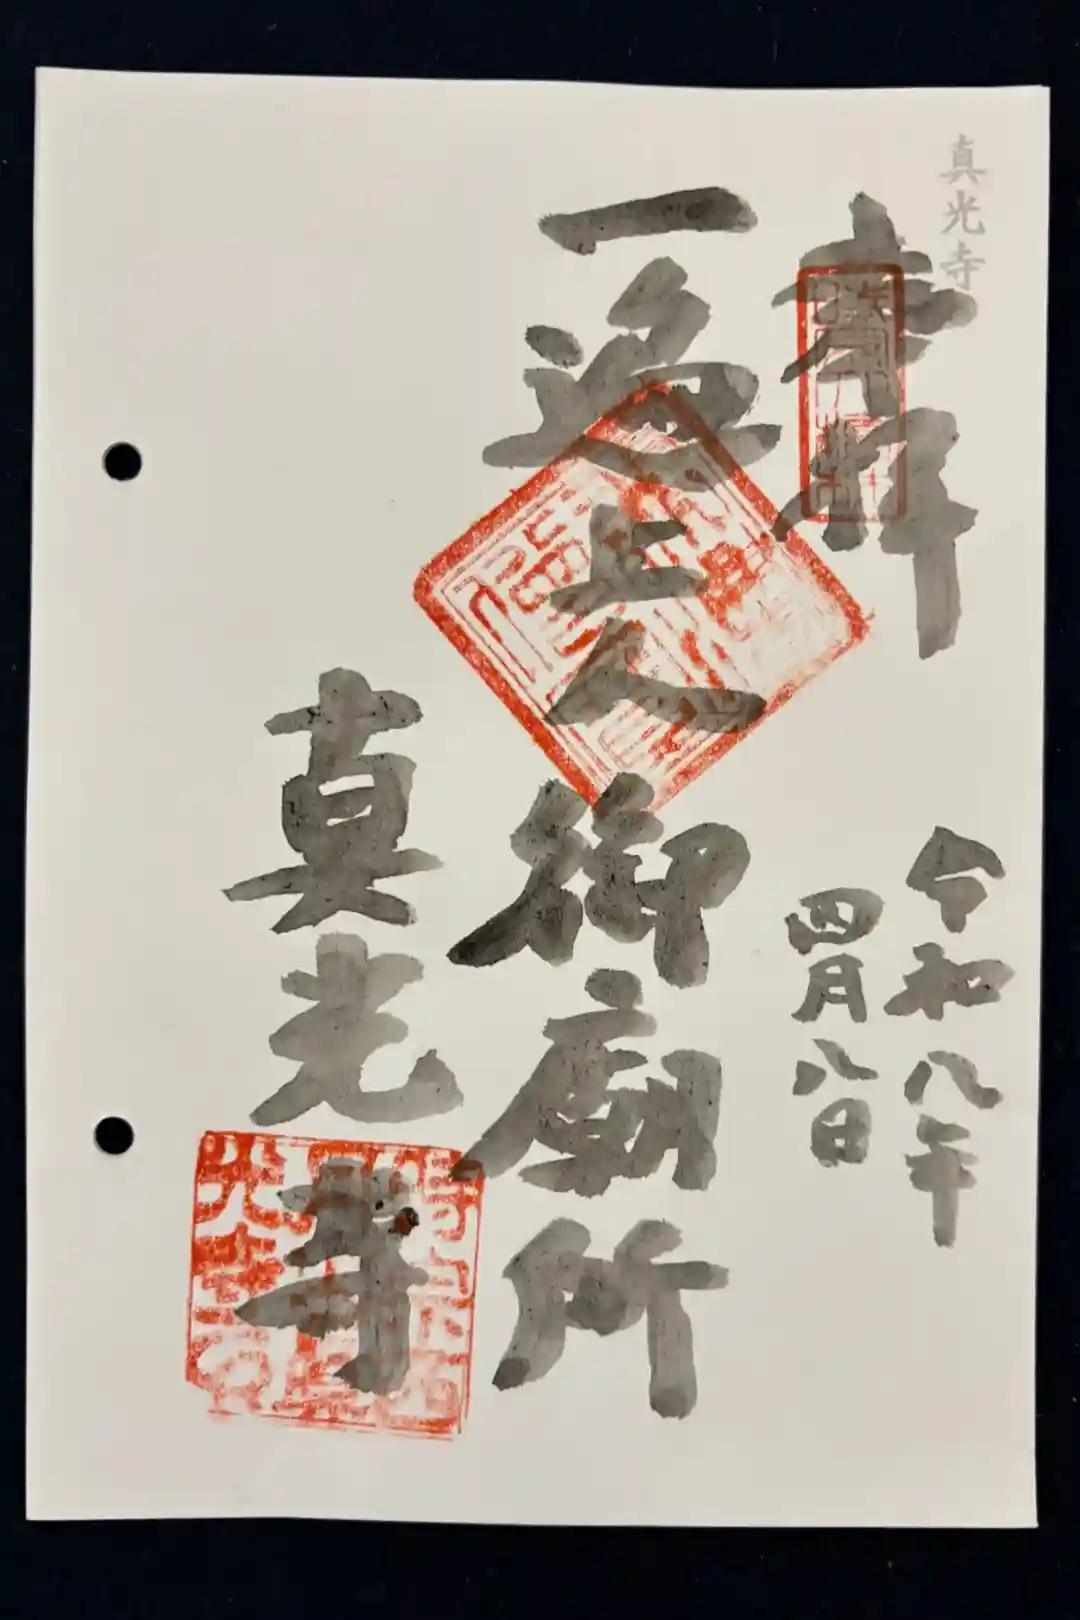 真光寺
奉拝
令和八年
四月八日
一遍上人御廟所
真光寺